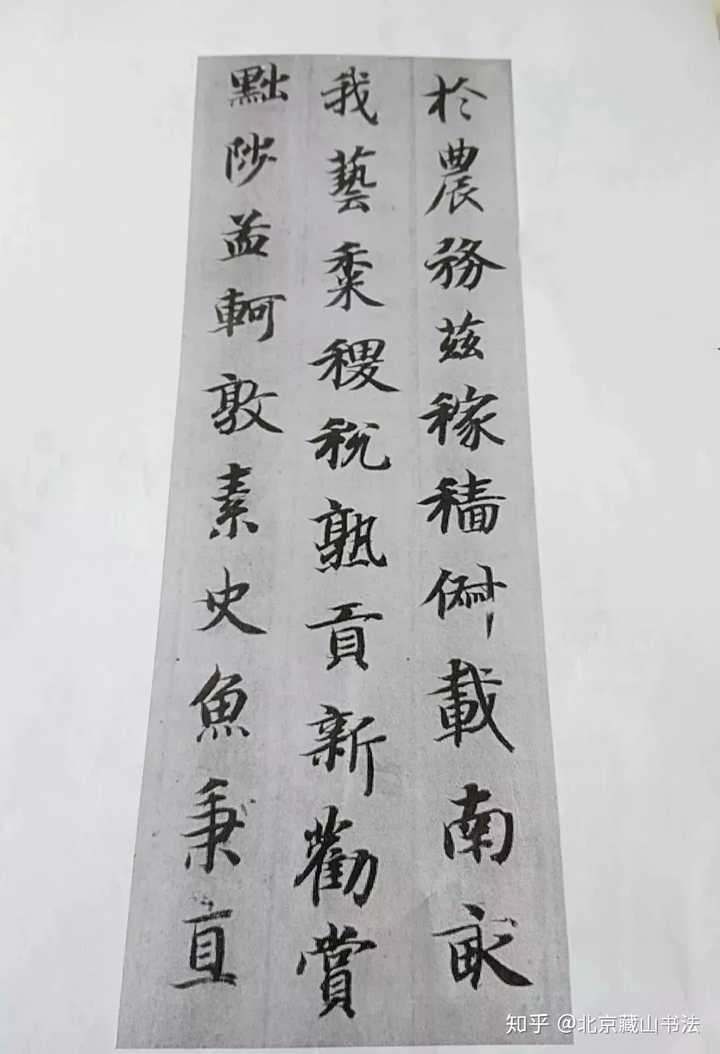 於農務茲稼穡俶載南畝
我藝黍稷稅熟貢新勸賞
黜陟孟軻敦素史魚秉直
知乎 @北京藏山书法